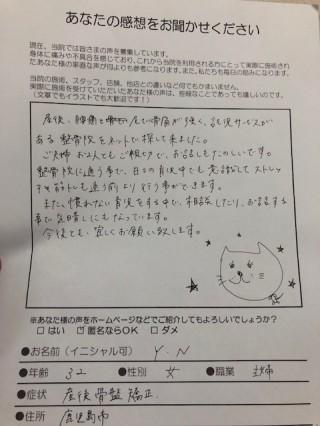 あなたの感想をお聞かせください
現在、当院では皆さまの声を募集しています。
身体に痛みや不具合を感じており、これから当院を利用される方にとって実際に施術され
たあなた様の率直な声が何よりも参考になります。また、私たちも毎日の励みになります。
当院の施術、スタッフ、店舗、他店との違いなど何でもかまいません。
実際に施術を受けていただいたあなた様の声は、些細なことであっても嬉しいのです。
(文章でもイラストでも大歓迎です!)
産後、腰痛と尾骨痛が強く、託児サービスが
ある整骨院をネットで探して来ました。
ご夫婦お2人でもご親切で、お話しもたのしいです。
整骨院に通う事で、日々の育児中でも意識してストレッ
チや筋トレも通う前より行う事ができます。
また、慣れない育児をする中で、相談したり、お話する
事で気晴しにもなっています。
今後とも、宜しくお願い致します。
※あなた様の声をホームページなどでご紹介してもよろしいでしょうか?
□ はい ☑ 匿名ならOK □ ダメ
●お名前(イニシャル可) Y.N
●年齢 32 ●性別 女 ●職業 主婦
●症状 産後骨盤矯正
●住所 鹿児島市